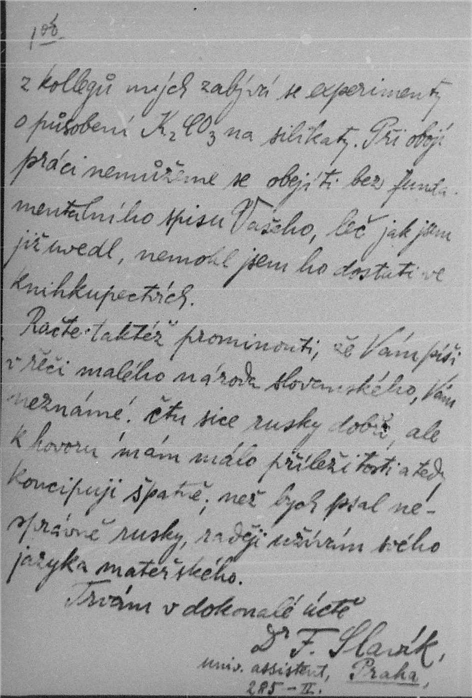 z kollegů mých zabývá se experimenty
o působení K₂CO₃ na silikaty. Při obojí
práci nemůžeme se obejíti bez funda-
mentalního spisu Vašeho, leč jak jsem
již uvedl, nemohl jsem ho dostati ve
knihkupectvích.
Račte taktéž prominouti, že Vám píši
v řeči malého národa slovanského, Vám
neznámé: čtu sice rusky dobře, ale
k hovoru mám málo příležitosti a tedy
koncipuji špatně; než bych psal ne-
správně rusky, raději užívám svého
jazyka mateřského.
Trvám v dokonalé úctě
Dr F. Slavík,
univ. assistent, Praha,
285-II.